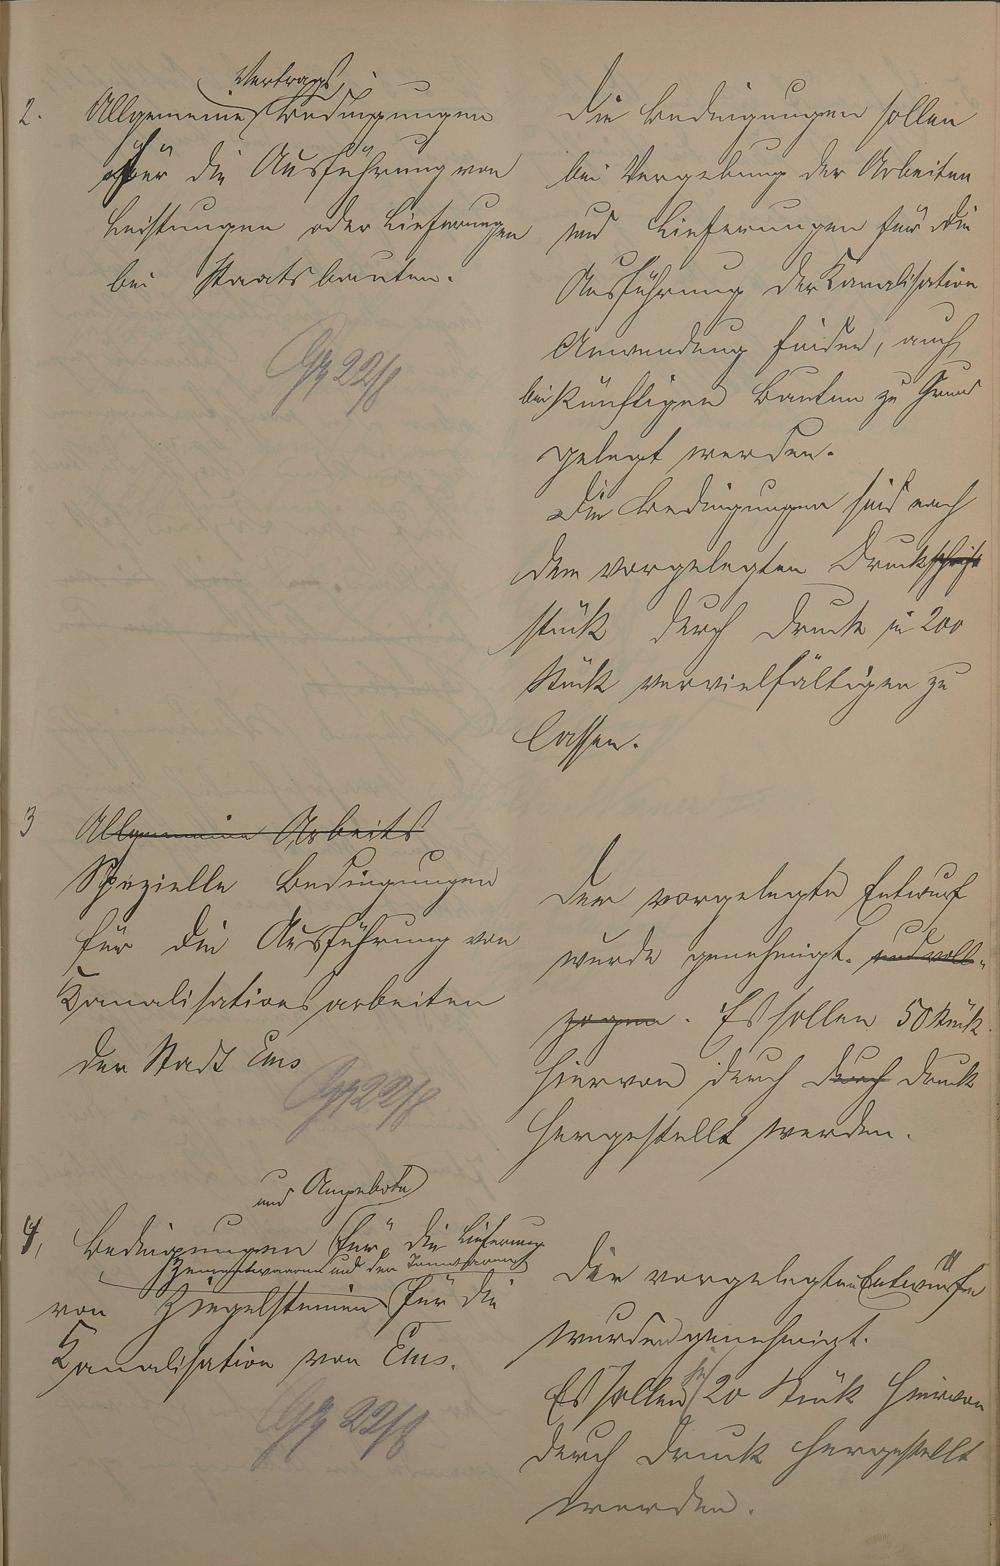 2.
Vertrags
Allgemeine Bedingungen
für die Ausführung von
Leistungen oder Lieferungen
bei Staatsbauten.
22/8
Die Bedingungen sollen
bei Vergebung der Arbeiten
und Lieferungen für die
Ausführung der Kanalisation
Anwendung finden, auch
bei künftigen Bauten zu Grund
gelegt werden.
Die Bedingungen sind nach
dem vorgelegten Druckschrift
stück durch Druck in 200
Stück vervielfältigen zu
lassen.
3
Allgemeine Arbeits
Spezielle Bedingungen
für die Ausführung von
Kanalisationsarbeiten
der Stadt Ems
22/8
Der vorgelegte Entwurf
wurde genehmigt. und voll-
zogen. Es sollen 50 Stück
hiervon durch durch Druck
hergestellt werden.
4,
und Angebote
Bedingungen für die Lieferung
Cementwaaren und der
von Ziegelsteinen für die
Kanalisation von Ems.
22/8
Die vorgelegten Entwürfe
wurden genehmigt.
Es sollen je 20 Stück hiervon
durch Druck hergestellt
werden.